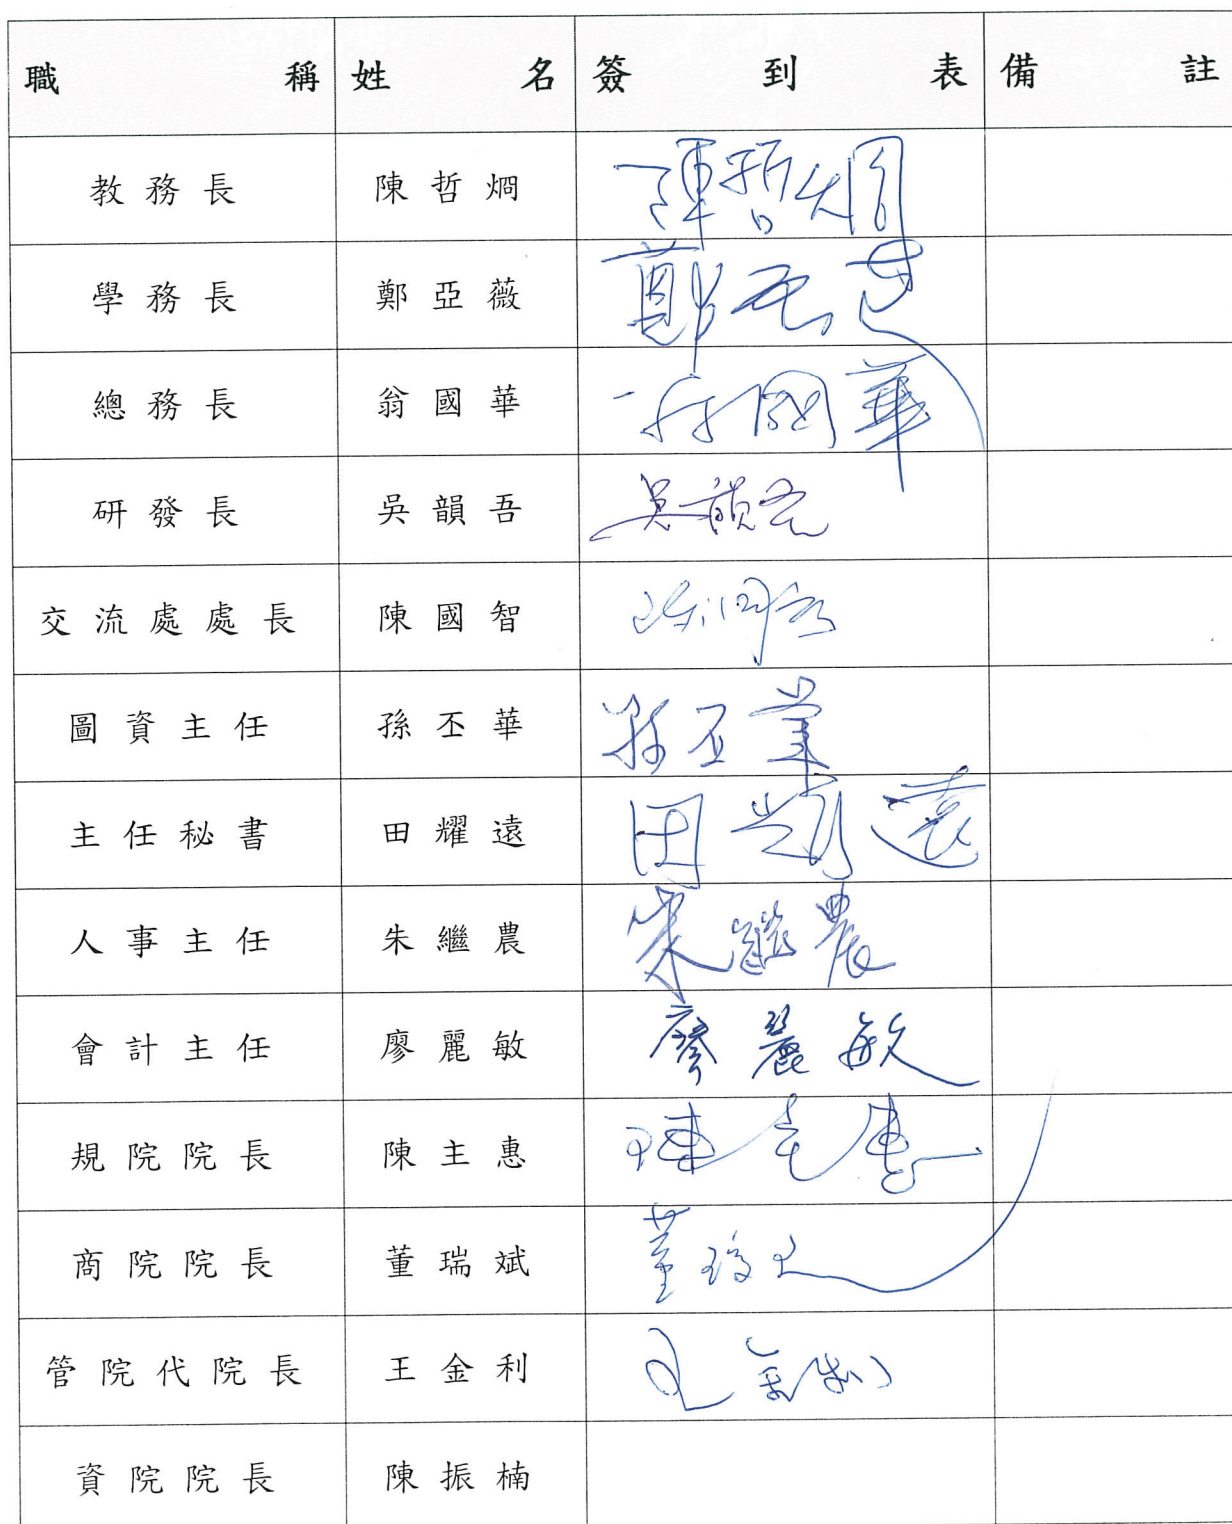 職稱 姓名 簽到表 備註
教務長 陳哲炯 陳哲炯
學務長 鄭亞薇 鄭亞薇
總務長 翁國華 翁國華
研發長 吳韻吾 吳韻吾
交流處處長 陳國智 陳國智
圖資主任 孫丕華 孫丕華
主任秘書 田耀遠 田耀遠
人事主任 朱繼農 朱繼農
會計主任 廖麗敏 廖麗敏
規院院長 陳主惠 陳主惠
商院院長 董瑞斌
管院代院長 王金利 王金利
資院院長 陳振楠